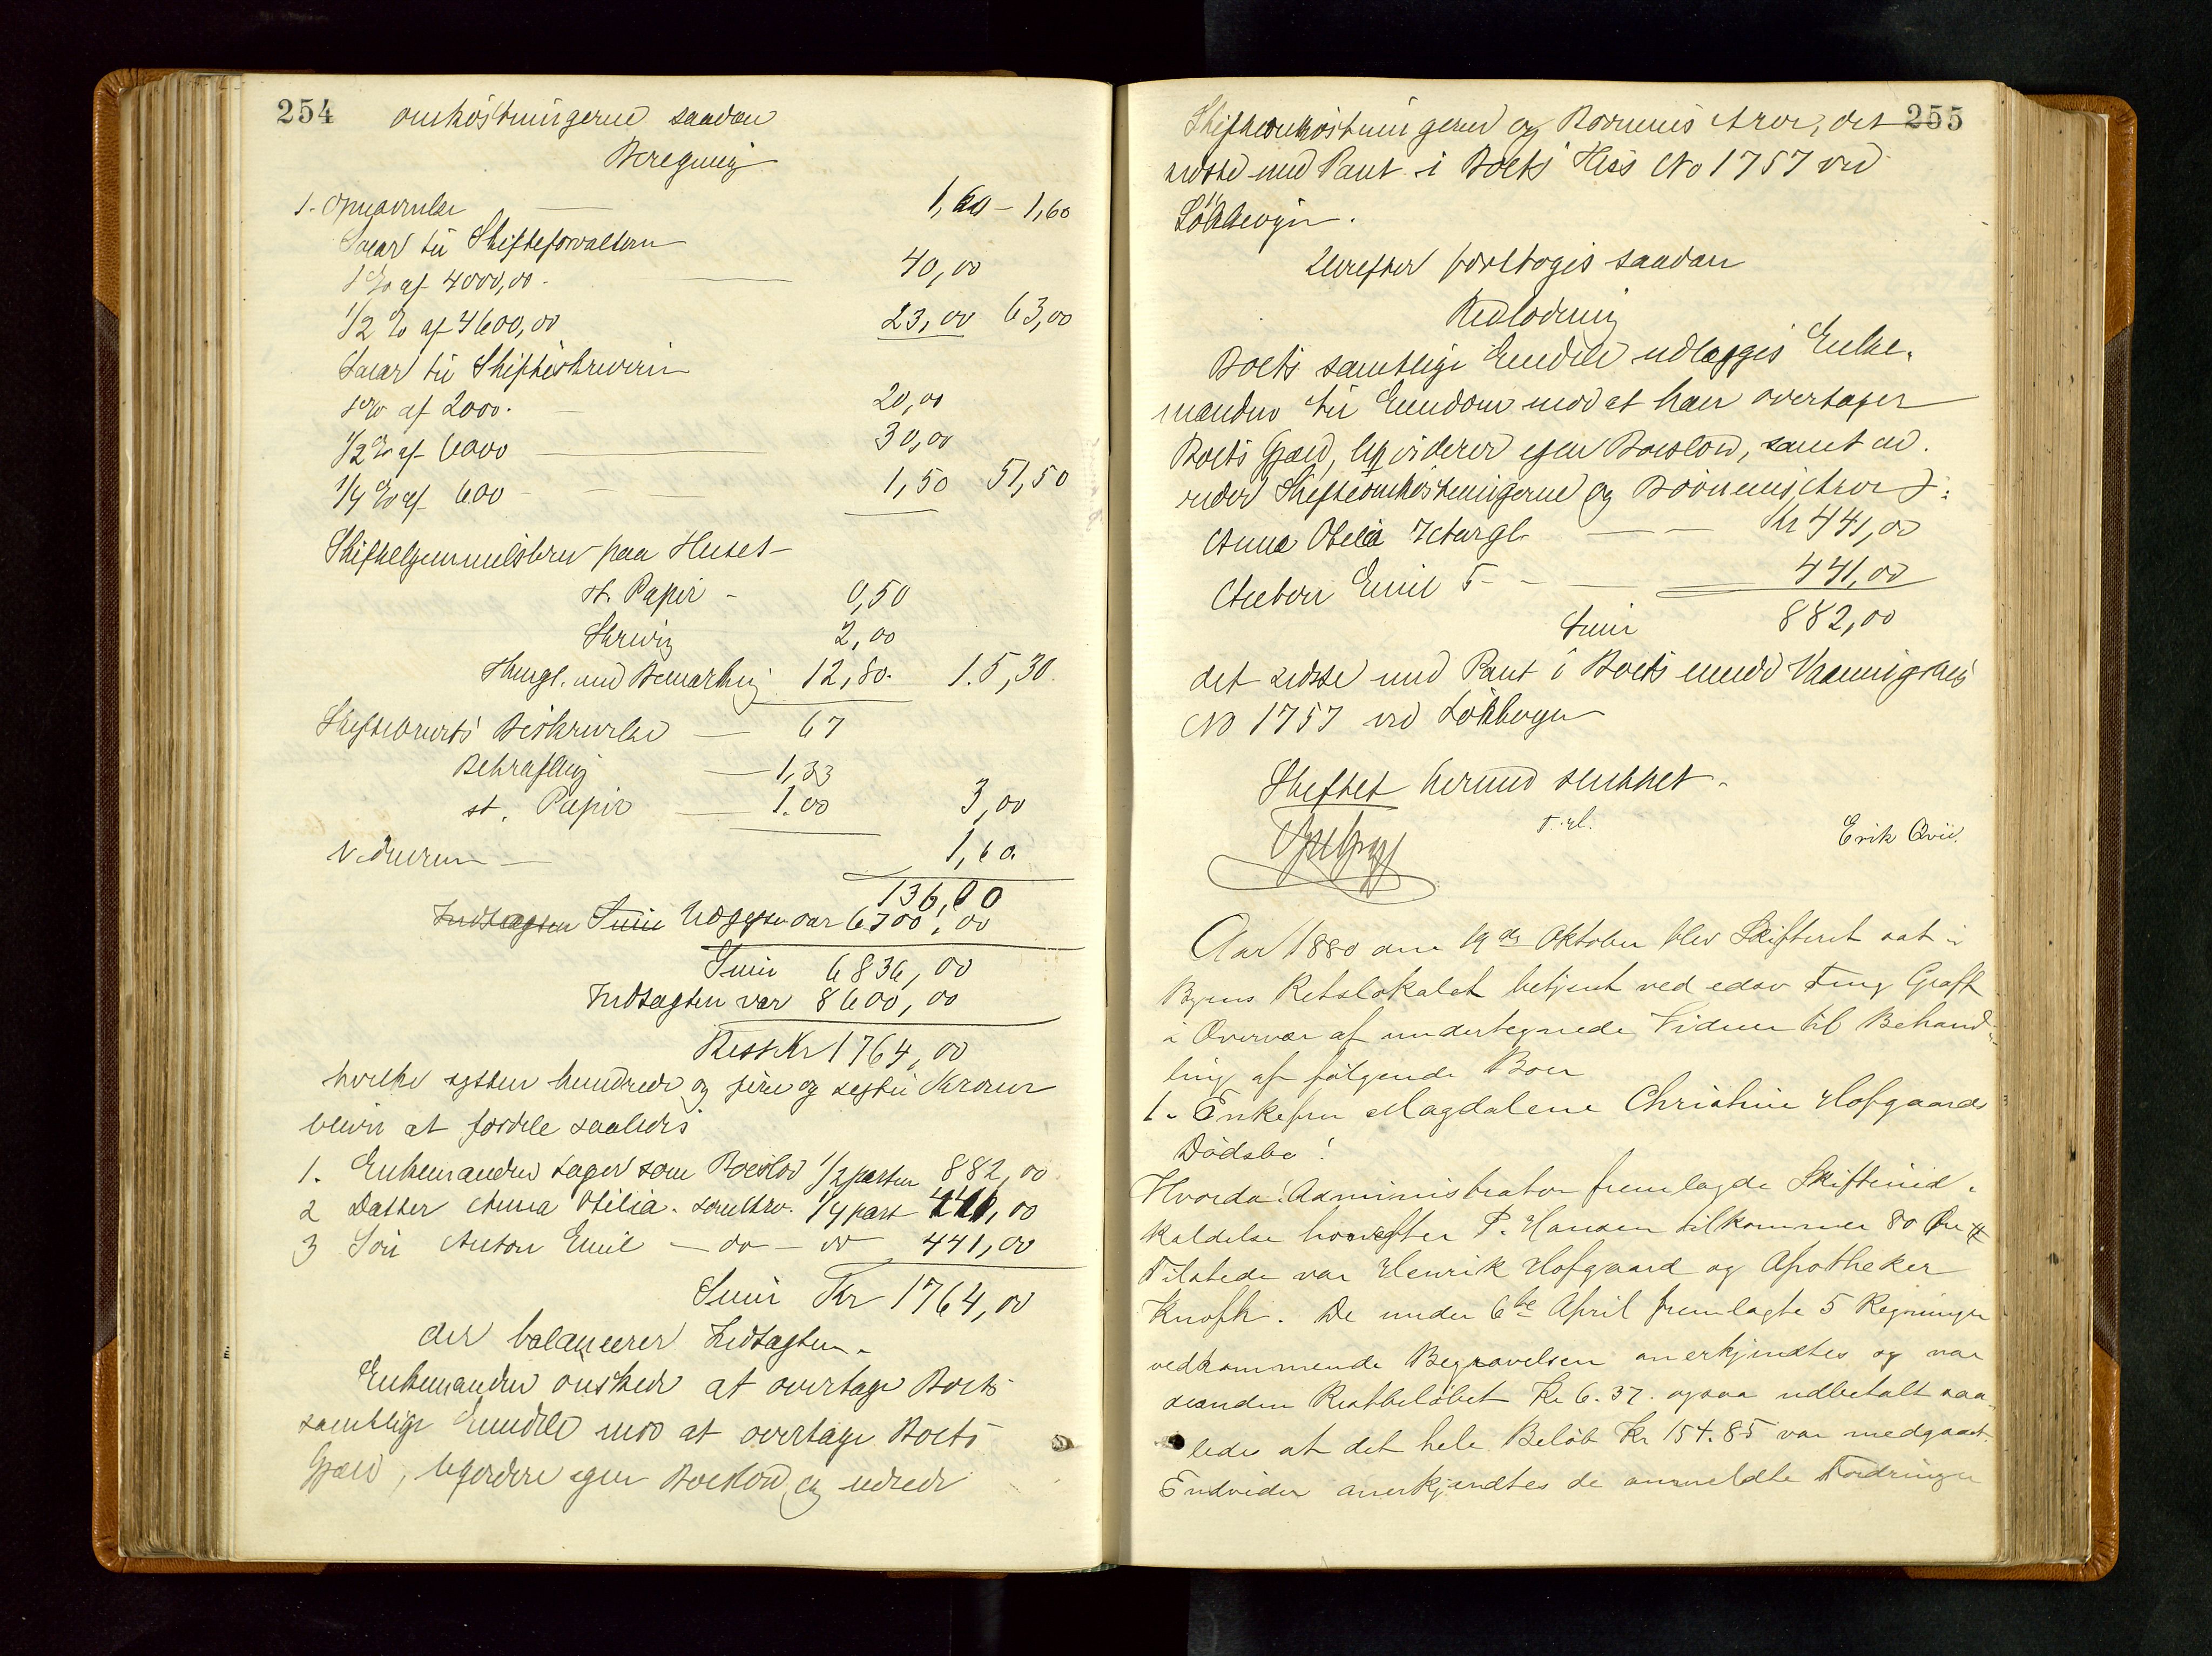 254
omkostningerne saadan
Beregning
1. Opnævnelse — 1,60 – 1,60
Salær til Skifteforvalteren
1 % af 4000,00 — 40,00
1/2 % af 4600,00 23,00 63,00
Salær til Skifteskriveren
1 % af 2000. — 20,00
1/2 % af 6000 — 30,00
1/4 % af 600 — 1,50 51,50
Skiftehjemmelsbrev paa Huset
st. Papir - 0,50
Skrivn 2,00
Thingl. med Bemærkning 12,80. 15,30.
Skiftebrevets Beskrivelse — 67
Bekræftelse — 1,33
st. Papir — 1.00 3,00
Vidnerne — 1,60.
136,00
Indtægten Sum Udgiften var 6700,00
Sum 6836,00
Indtægten var 8600,00
Rest Kr 1764,00
hvilke sytten hundrede og fire og sexti Kroner
bliver at fordele saaledes
1. Enkemanden tager som Boeslod 1/2 parten 882,00
2 Datter Anna Otilia. som Arv. 1/4 part 441,00
3 Søn Anton Emil — do — do 441,00
Sum Kr 1764,00
der balancerer Indtægten.
Enkemanden ønsker at overtage Boets
samtlige Eiendele mod at overtage Boets
Gjæld, liqvidere egen Boeslod, og udrede
255
Skifteomkostningerne og Børnenes Arve, det
sidste med Pant i Boets Hus No 1757 ved
Løkkevejen.
Derefter foretoges saadan
Udlodning
Boets samtlige Eiendele udlægges Enke-
manden til Eiendom mod at han overtager
Boets Gjæld, liqviderer egen Boeslod, samt ud-
reder Skifteomkostningerne og Børnenes Arve:
Anna Otilia — — Kr 441,00
Anton Emil — 441,00
Sum 882,00
det sidste med Pant i Boets
No 1757 ved Løkkevejen
Skiftet hermed sluttet.
Erik Qvie.
Aar 1880 den 19de Oktober blev Skifteret sat i
Byens Retslokalet betjent ved edsv Graff
i Overvær af undertegnede Vidner til Behand-
ling af følgende Boer
1. Enkefru Magdalene Christine Hofgaards
Dødsbo!
Hvorda! Administrator fremlagde Skifteind-
kaldelse hvorefter P. Hansen tilkommer 80 Øre
Tilstede var Henrik Hofgaard og Apotheker
Knoph. De under 6te April fremlagte 5 Regninger
vedkommende Begravelsen anerkjendtes og var
desuden Restbeløbet Kr 6.37. ogsaa udbetalt saa-
ledes at det hele Beløb Kr 154.85 var medgaaet.
Endvider anerkjendtes de anmeldte Fordringer